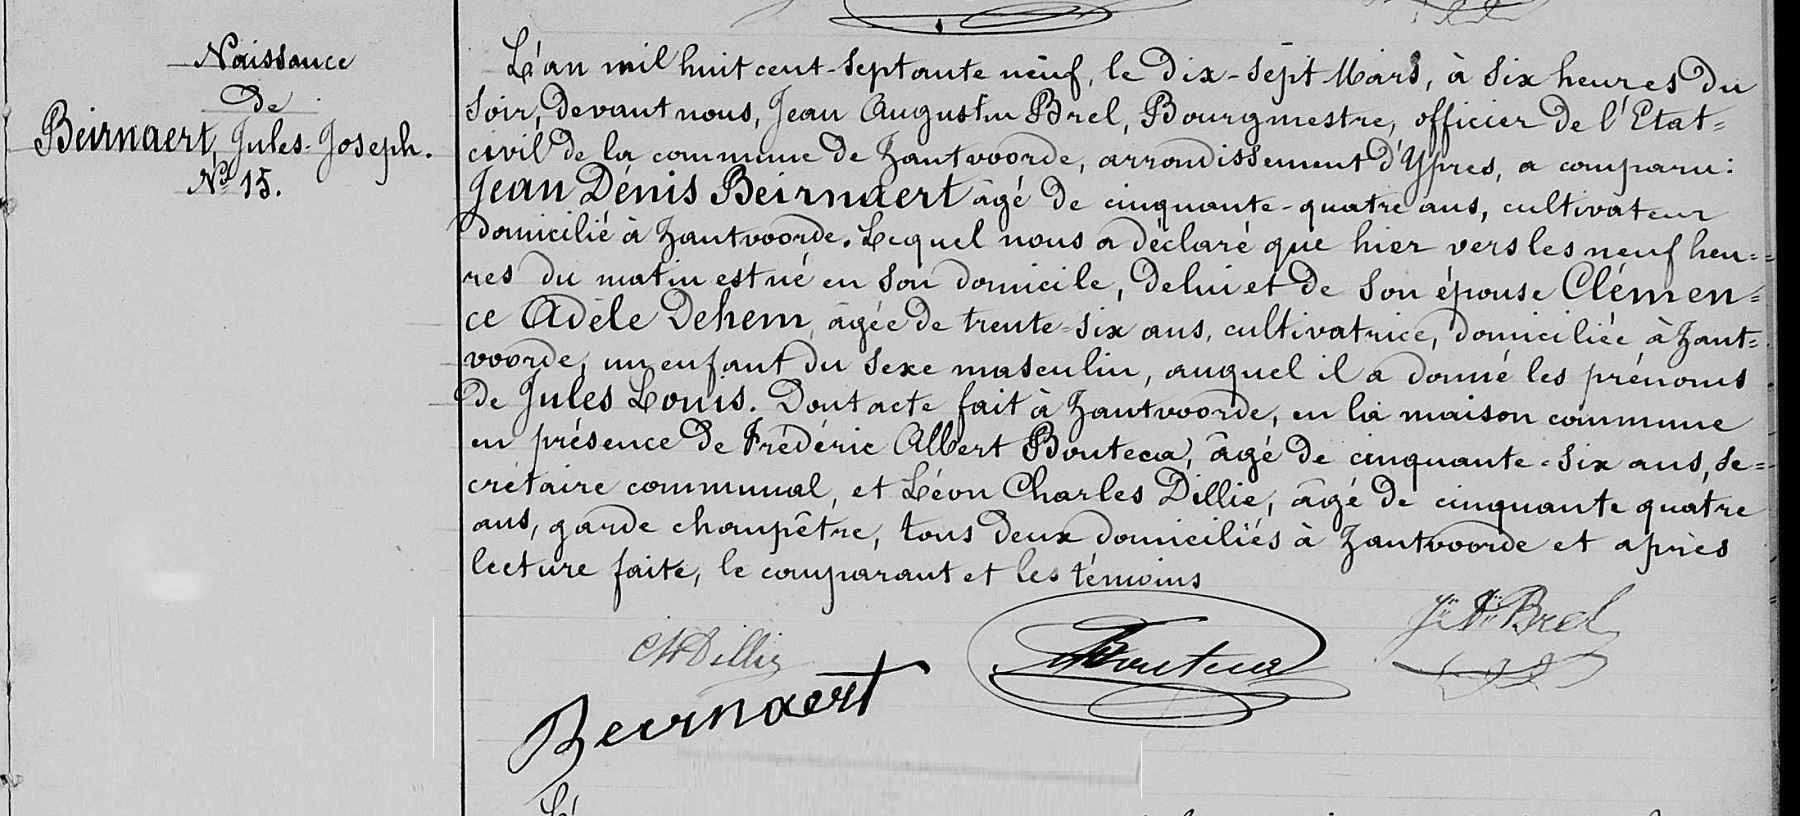 Naissance
De
Beirnaert, Jules-Joseph.
No 15.
L'an mil huit cent-septante neuf, le Dix-sept Mars, à six heures Du
Soir, Devant nous, Jean Augustin Brel, Bourgmestre, officier De l'Etat=
civil De la commune De Zantvoorde, arrondissement D'Ypres, a comparu:
Jean Dénis Beirnaert âgé De cinquante-quatre ans, cultivateur
Domicilié à Zantvoorde. Lequel nous a déclaré que hier vers les neuf heu=
res du matin est né en son domicile, De lui et De Son épouse Clémen=
ce Adèle Dehem, âgée De trente-six ans, cultivatrice, Domiciliée à Zant=
voorde, un enfant Du Sexe masculin, auquel il a donné les prénoms
De Jules Louis. Dont acte fait à Zantvoorde, en la maison commune
en présence De Frédéric Albert Bouteca, âgé De cinquante-six ans, Se=
crétaire communal, et Léon Charles Dillie, âgé De cinquante quatre
ans, garde champêtre, tous Deux Domiciliés à Zantvoorde et après
lecture faite, le comparant et les témoins
Dillie
Bouteca
Brel
Beirnaert